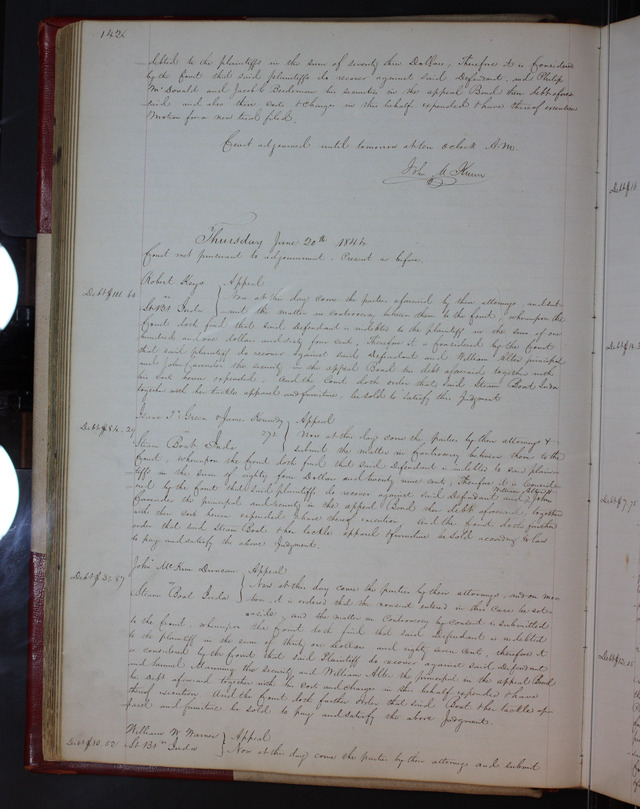 142
debted to the plaintiffs in the sum of seventy three Dollars, Therefore it is considered
by the Court that said plaintiffs do recover against said Defendant, and Philip
McDonald and Jacob C his securities in the appeal Bond their debt afore
said and also their costs & charges in this behalf expended & have thereof execution
Motion for a new trial filed.
Court adjourned until tomorrow at ten o'clock A.M.
John M Krum
Thursday June 20th 1844
Court met pursuant to adjournment. Present as before.
Robert Keys } Appeal
Debt $101.64
vs } Now at this day come the parties aforesaid by their attorneys, and sub-
St. Bt. India } mit the matter in controversy between them to the Court, whereupon the
Court doth find that said Defendant is indebted to the plaintiff in the sum of one
hundred and one dollars and sixty four cents, Therefore it is considered by the Court
that said plaintiff do recover against said Defendant and William Allen principal
and John the security in the appeal Bond his debt aforesaid together with
his costs herein expended. And the Court doth order that said Steam Boat India
together with her tackle apparel and furniture, be sold to satisfy this Judgment
Green & James Kennedy } Appeal
Debt $84.29
vs } Now at this day come the parties by their attorneys &
Steam Boat India } submit the matter in Controversy between them to the
Court, whereupon the Court doth find that said Defendant is indebted to said plain
tiffs in the sum of eighty four Dollars and twenty nine cents, Therefore it is consid
ered by the Court that said plaintiffs do recover against said Defendant and John
the principal and security in the appeal Bond their debt aforesaid, together
with their costs herein expended & have thereof execution. And the Court doth further
order that said Steam Boat & her tackle apparel & furniture be sold according to law
to pay and satisfy the above Judgment.
John McKim Duncan } Appeal
Debt $31.87
vs } Now at this day come the parties by their attorneys, and on mo
Steam Boat India } tion it is ordered that the nonsuit entered in this case be set
aside, and the matter in Controversy by consent is submitted
to the Court, whereupon the Court doth find that said Defendant is indebted
to the plaintiff in the sum of thirty one dollars and eighty seven cents, therefore it
is considered by the Court that said Plaintiff do recover against said Defendant
and Samuel the security and William Allen the principal in the appeal Bond
his debt aforesaid together with his costs and charges in this behalf expended & have
thereof execution And the Court doth further Order that said Boat & her tackle ap
parel and furniture be sold to pay and satisfy the above Judgment.
William W Warner } Appeal
Debt $10.02
St. Bt. India } Now at this day come the parties by their attorneys and submit